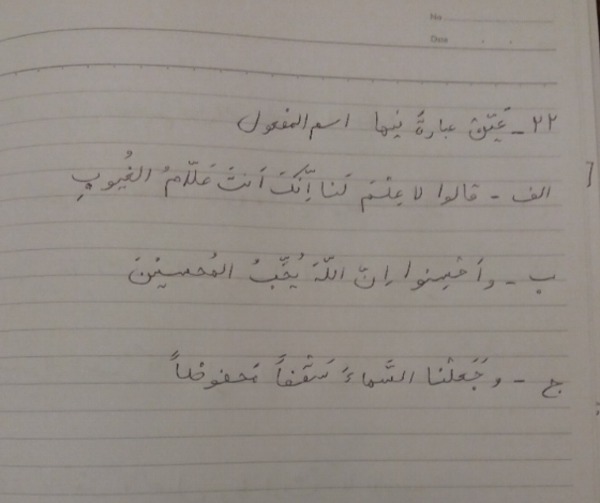 No
Date
٢٢ـ عَيِّنْ عبارةً فيها اسم المفعول
الف - قالوا لا عِلْمَ لَنا إنَّكَ أنتَ عَلّامُ الغُيوبِ
ب - وأحْسِنوا إنّ اللّهَ يُحِّبُ المُحسِنينَ
ج - وَجَعَلْنا السَّماءَ سَقْفاً مَحفوظاً